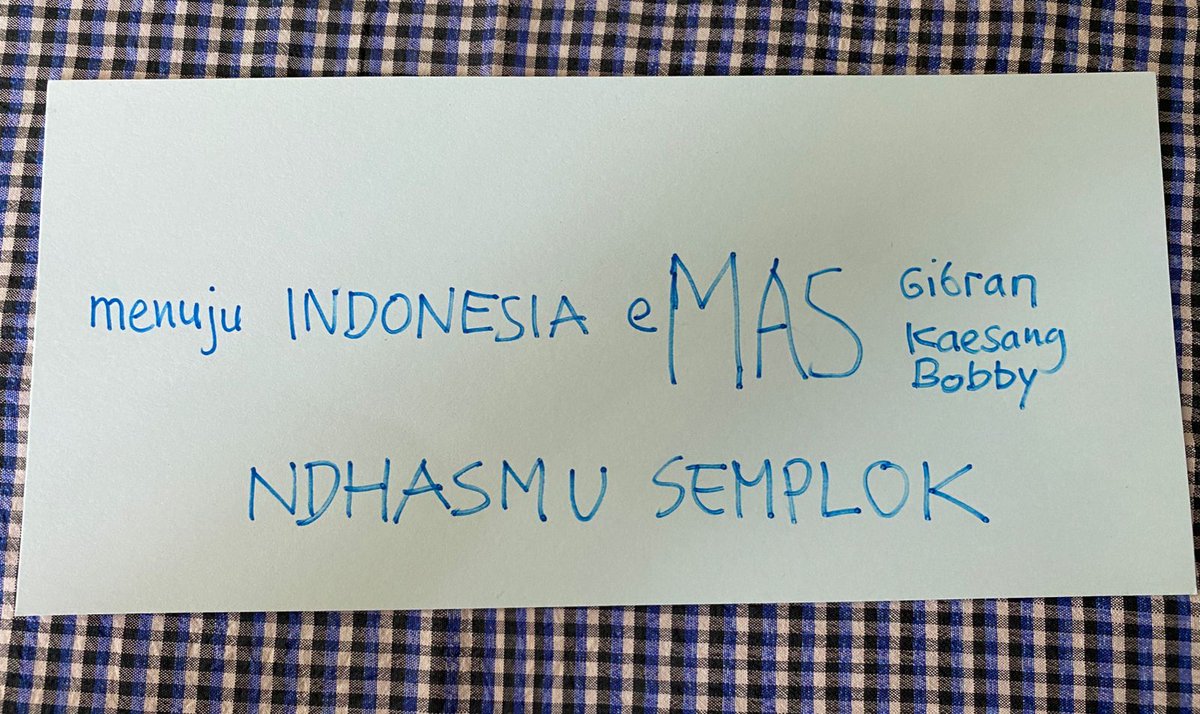 menuju INDONESIA eMAS
Gibran
Kaesang
Bobby
NDHASMU SEMPLOK